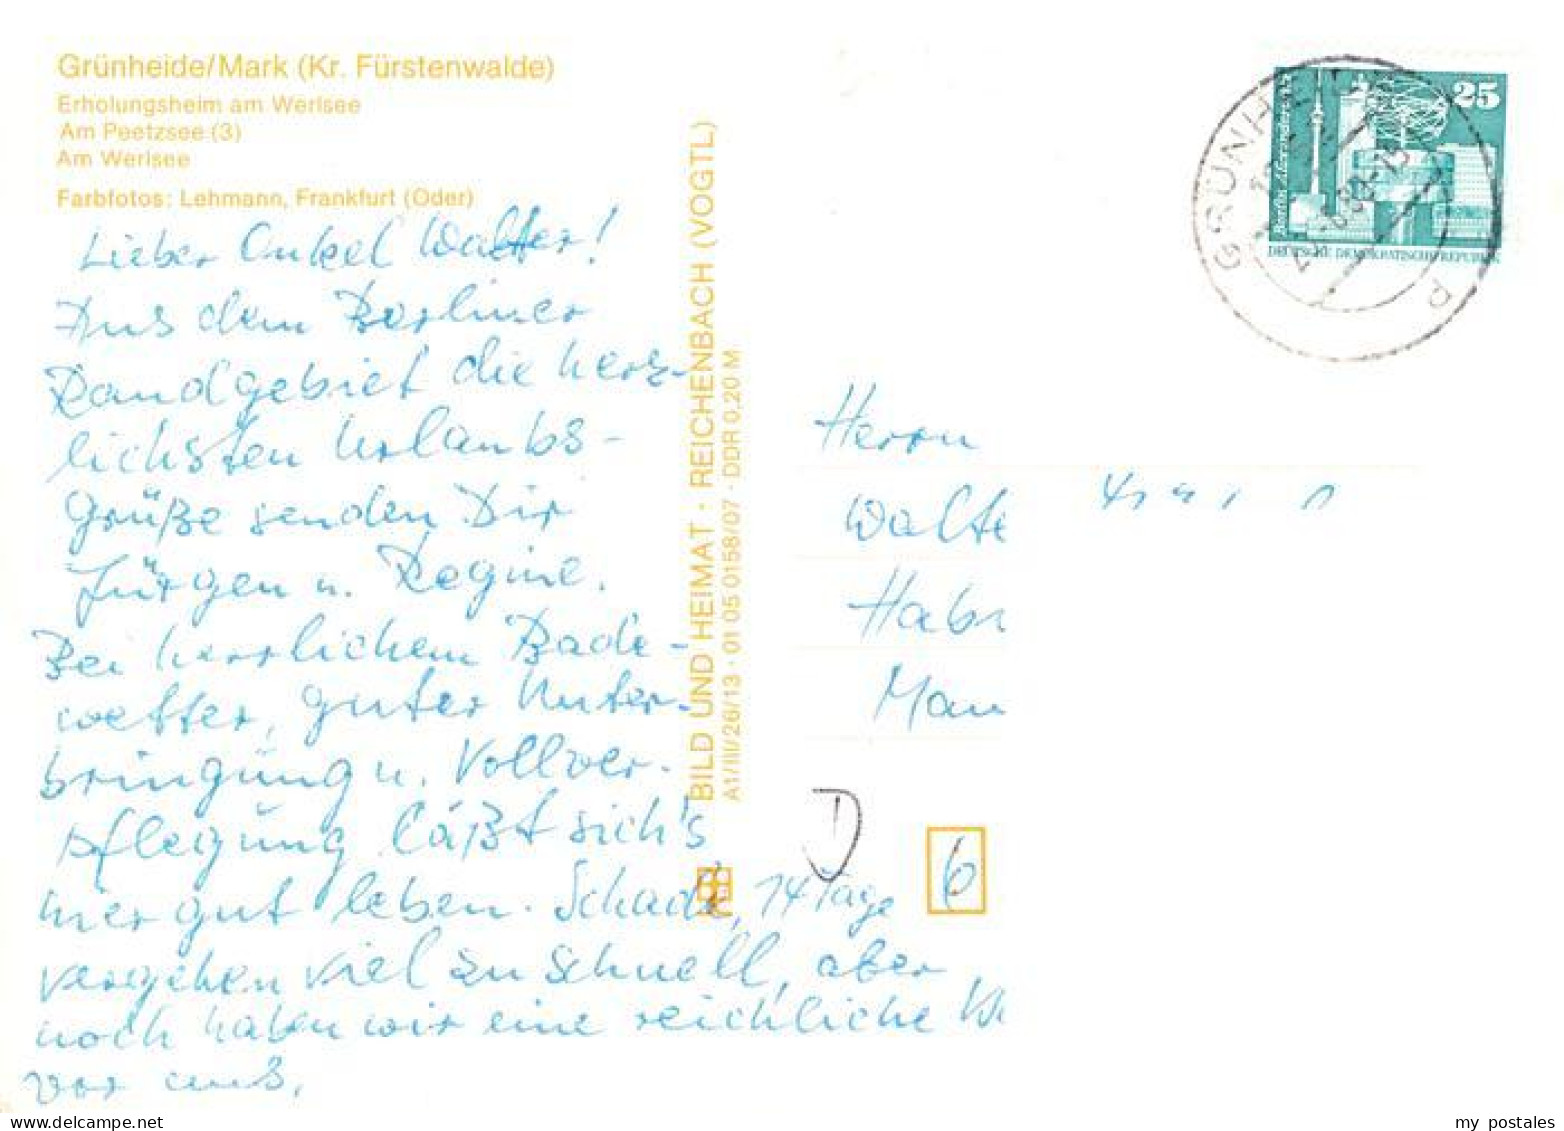 Grünheide/Mark (Kr. Fürstenwalde)
Erholungsheim am Werlsee
Am Peetzsee (3)
Am Werlsee
Farbfotos: Lehmann, Frankfurt (Oder)
Lieber Onkel Walter!
Aus dem Berliner
Randgebiet die herz-
lichsten Urlaubs-
grüße senden Dir
Jürgen u. Regine.
Bei herrlichem Bade-
wetter, guter Unter-
bringung u. Vollver-
pflegung läßt sich's
hier gut leben. Schade, 14 Tage
vergehen viel zu schnell, aber
noch haben wir eine reichliche
vor uns.
BILD UND HEIMAT · REICHENBACH (VOGTL)
A1/III/26/13 · 01 05 0158/07 · DDR 0,20 M
25
Berlin, Alexanderplatz
DEUTSCHE DEMOKRATISCHE REPUBLIK
GRÜNHEIDE
Herrn
Walte
Hab
Man
D
6
my postales